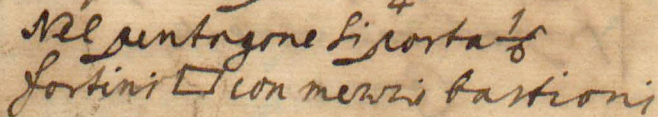 Nel pentagone si porta 1/6
fortini □ con mezzi bastioni